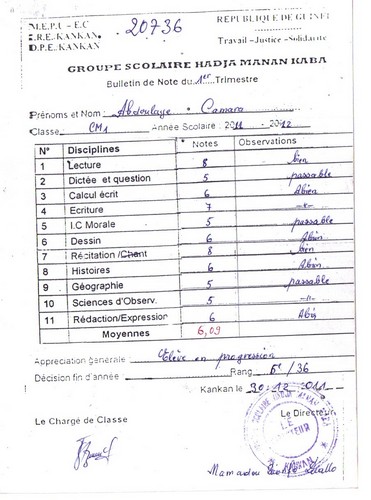 M.E.P.U - E.C
I.R.E. KANKAN.
D.P.E. KANKAN.
20736
REPUBLIQUE DE GUINEE
Travail -Justice -Solidarité
GROUPE SCOLAIRE HADJA MANAN KABA
Bulletin de Note du 1er Trimestre
Prénoms et Nom : Abdoulaye Camara
Classe CM1 Année Scolaire : 2011 - 2012
N° Disciplines Notes Observations
1 Lecture 8 bien
2 Dictée et question 5 passable
3 Calcul écrit 6 Abien
4 Ecriture 7 -"-
5 I.C Morale 5 passable
6 Dessin 6 Abien
7 Récitation /Chant 8 bien
8 Histoires 6 Abien
9 Géographie 5 passable
10 Sciences d'Observ. 5 -"-
11 Rédaction/Expression 6 Abien
Moyennes 6,09
Appreciation generale : Elève en progression
Décision fin d'année Rang 6e /36
Kankan le 30-12-2011
Le Chargé de Classe Le Directeur
SCOLAIRE HADJA MANAN
KANKAN
Mamadou